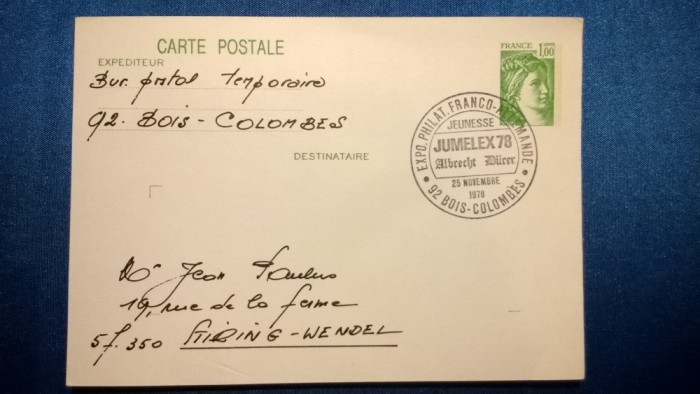 CARTE POSTALE
EXPEDITEUR
Bur. postal temporaire
92. BOIS-COLOMBES
DESTINATAIRE
FRANCE 1,00
EXPO. PHILAT. FRANCO-ALLEMANDE
JEUNESSE
JUMELEX 78
Albrecht Dürer
25 NOVEMBRE
1978
92 BOIS-COLOMBES
Jean Paulus
19, rue de la ferme
57.350 STIRING-WENDEL